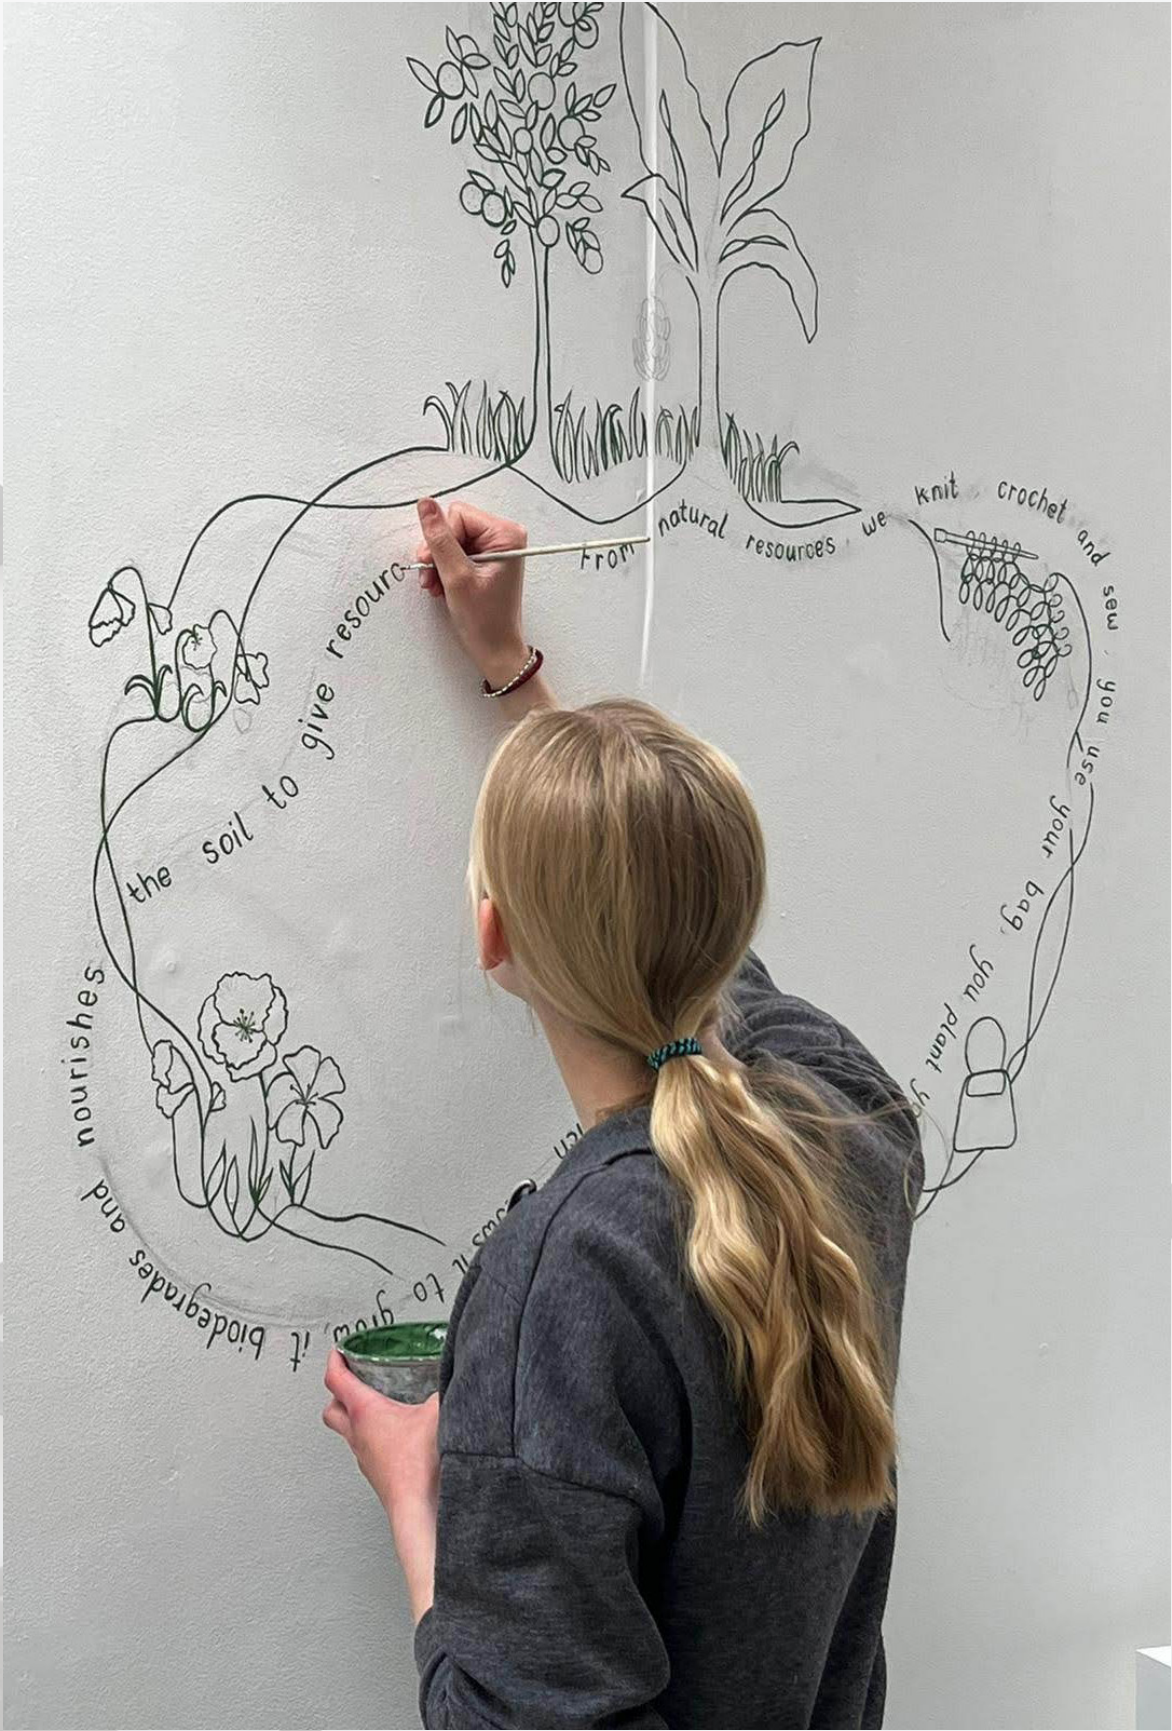 From natural resources we knit crochet and sew, you use your bag, you plant
to grow, it biodegrades and nourishes
the soil to give